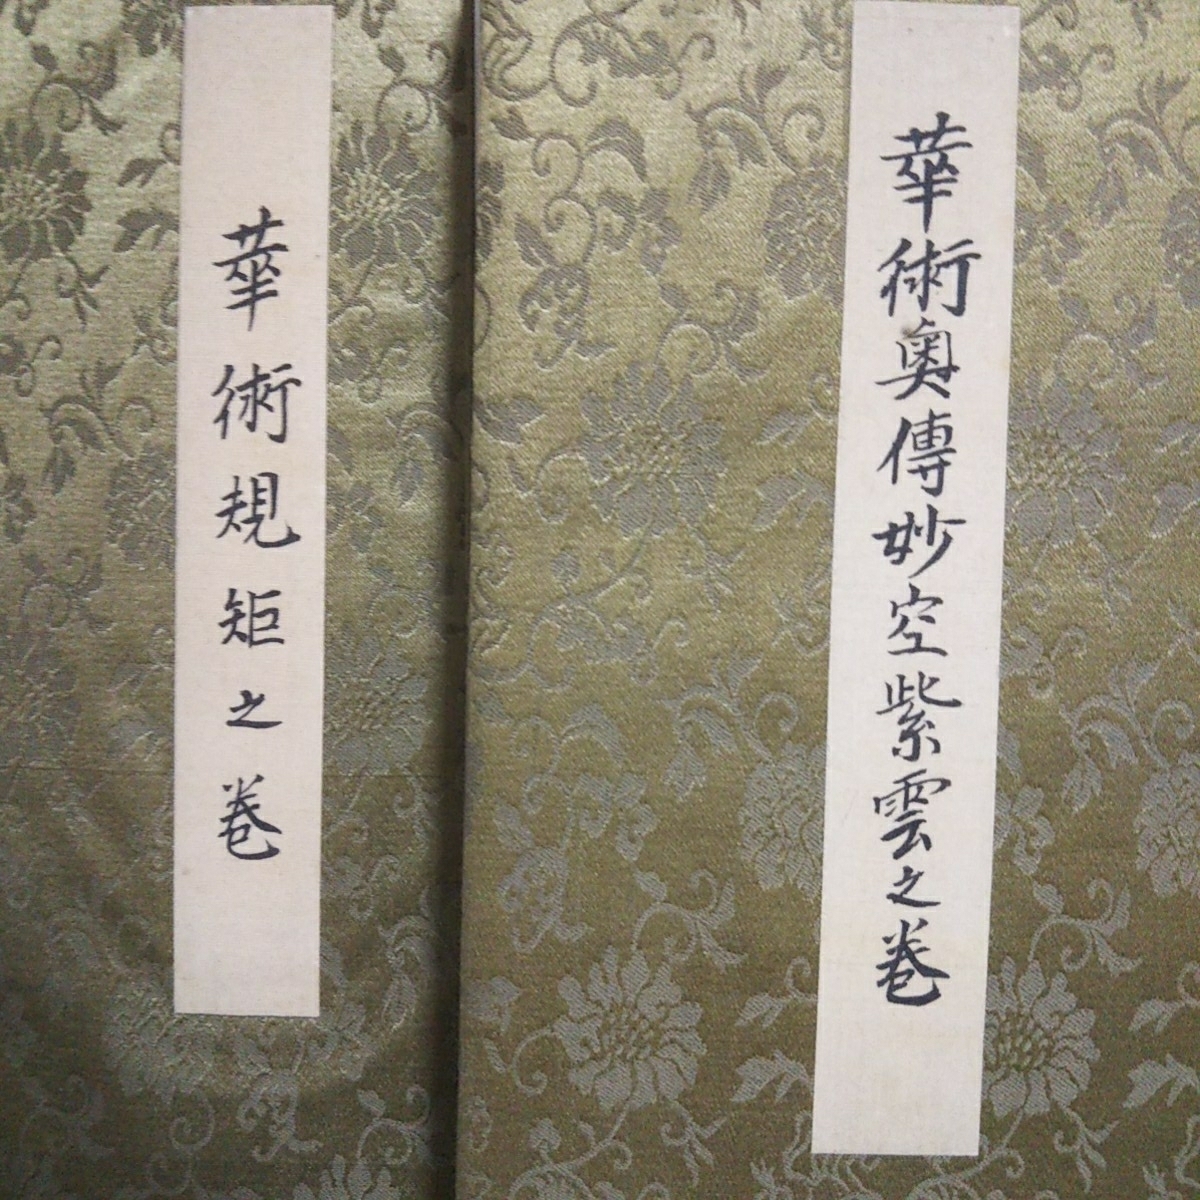 華術奥傳妙空紫雲之巻
華術規矩之巻